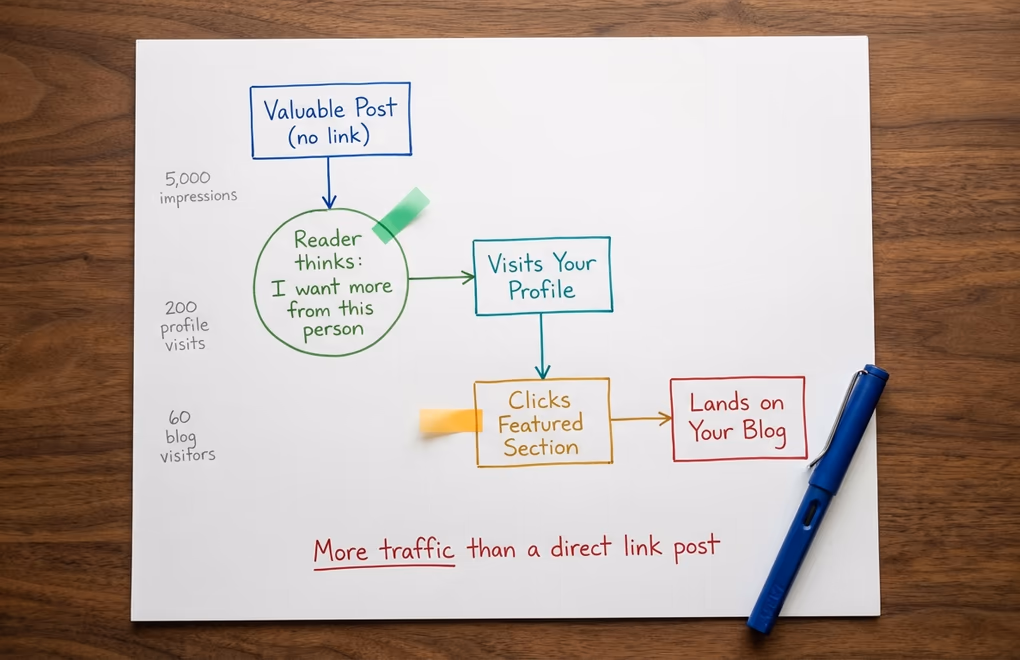 Valuable Post
(no link)
5,000
impressions
Reader
thinks:
I want more
from this
person
Visits Your
Profile
200
profile
visits
Clicks
Featured
Section
Lands on
Your Blog
60
blog
visitors
More traffic than a direct link post